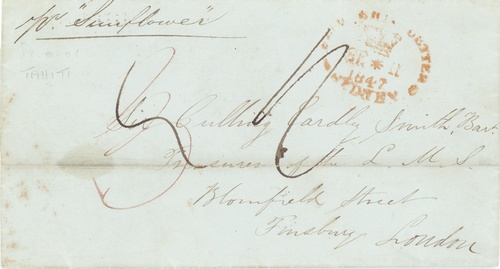 pr. "Sunflower"
TAHITI
SHIP LETTER
SP * 11
1847
SYDNEY
Sir Culling Eardly Smith, Bart
Treasurer of the L. M. S.
Blomfield Street
Finsbury London